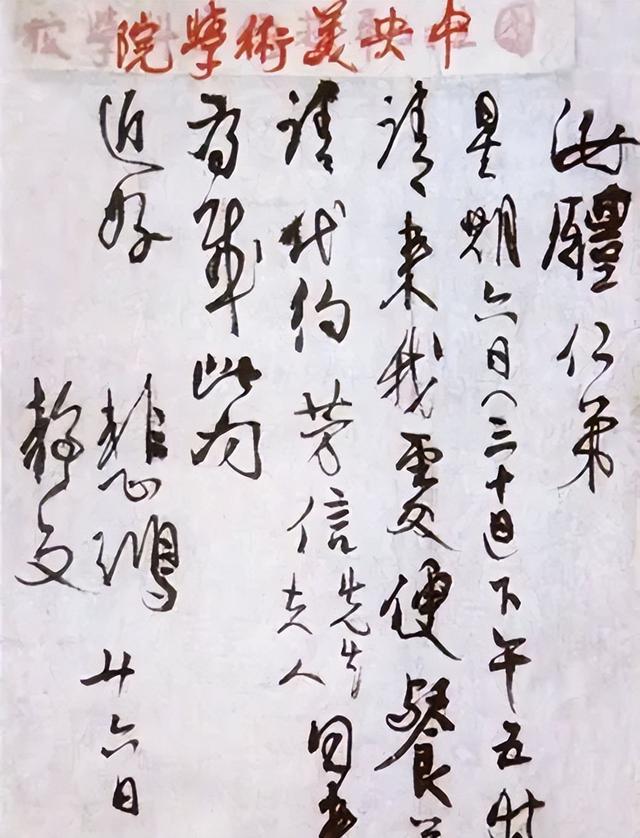 中央美術學院
汝醴仁弟
星期六日（三十日）下午五時
請來我處便餐並
請代約芳信先生夫人同來
為幸此問
近好
悲鴻 廿六日
靜文